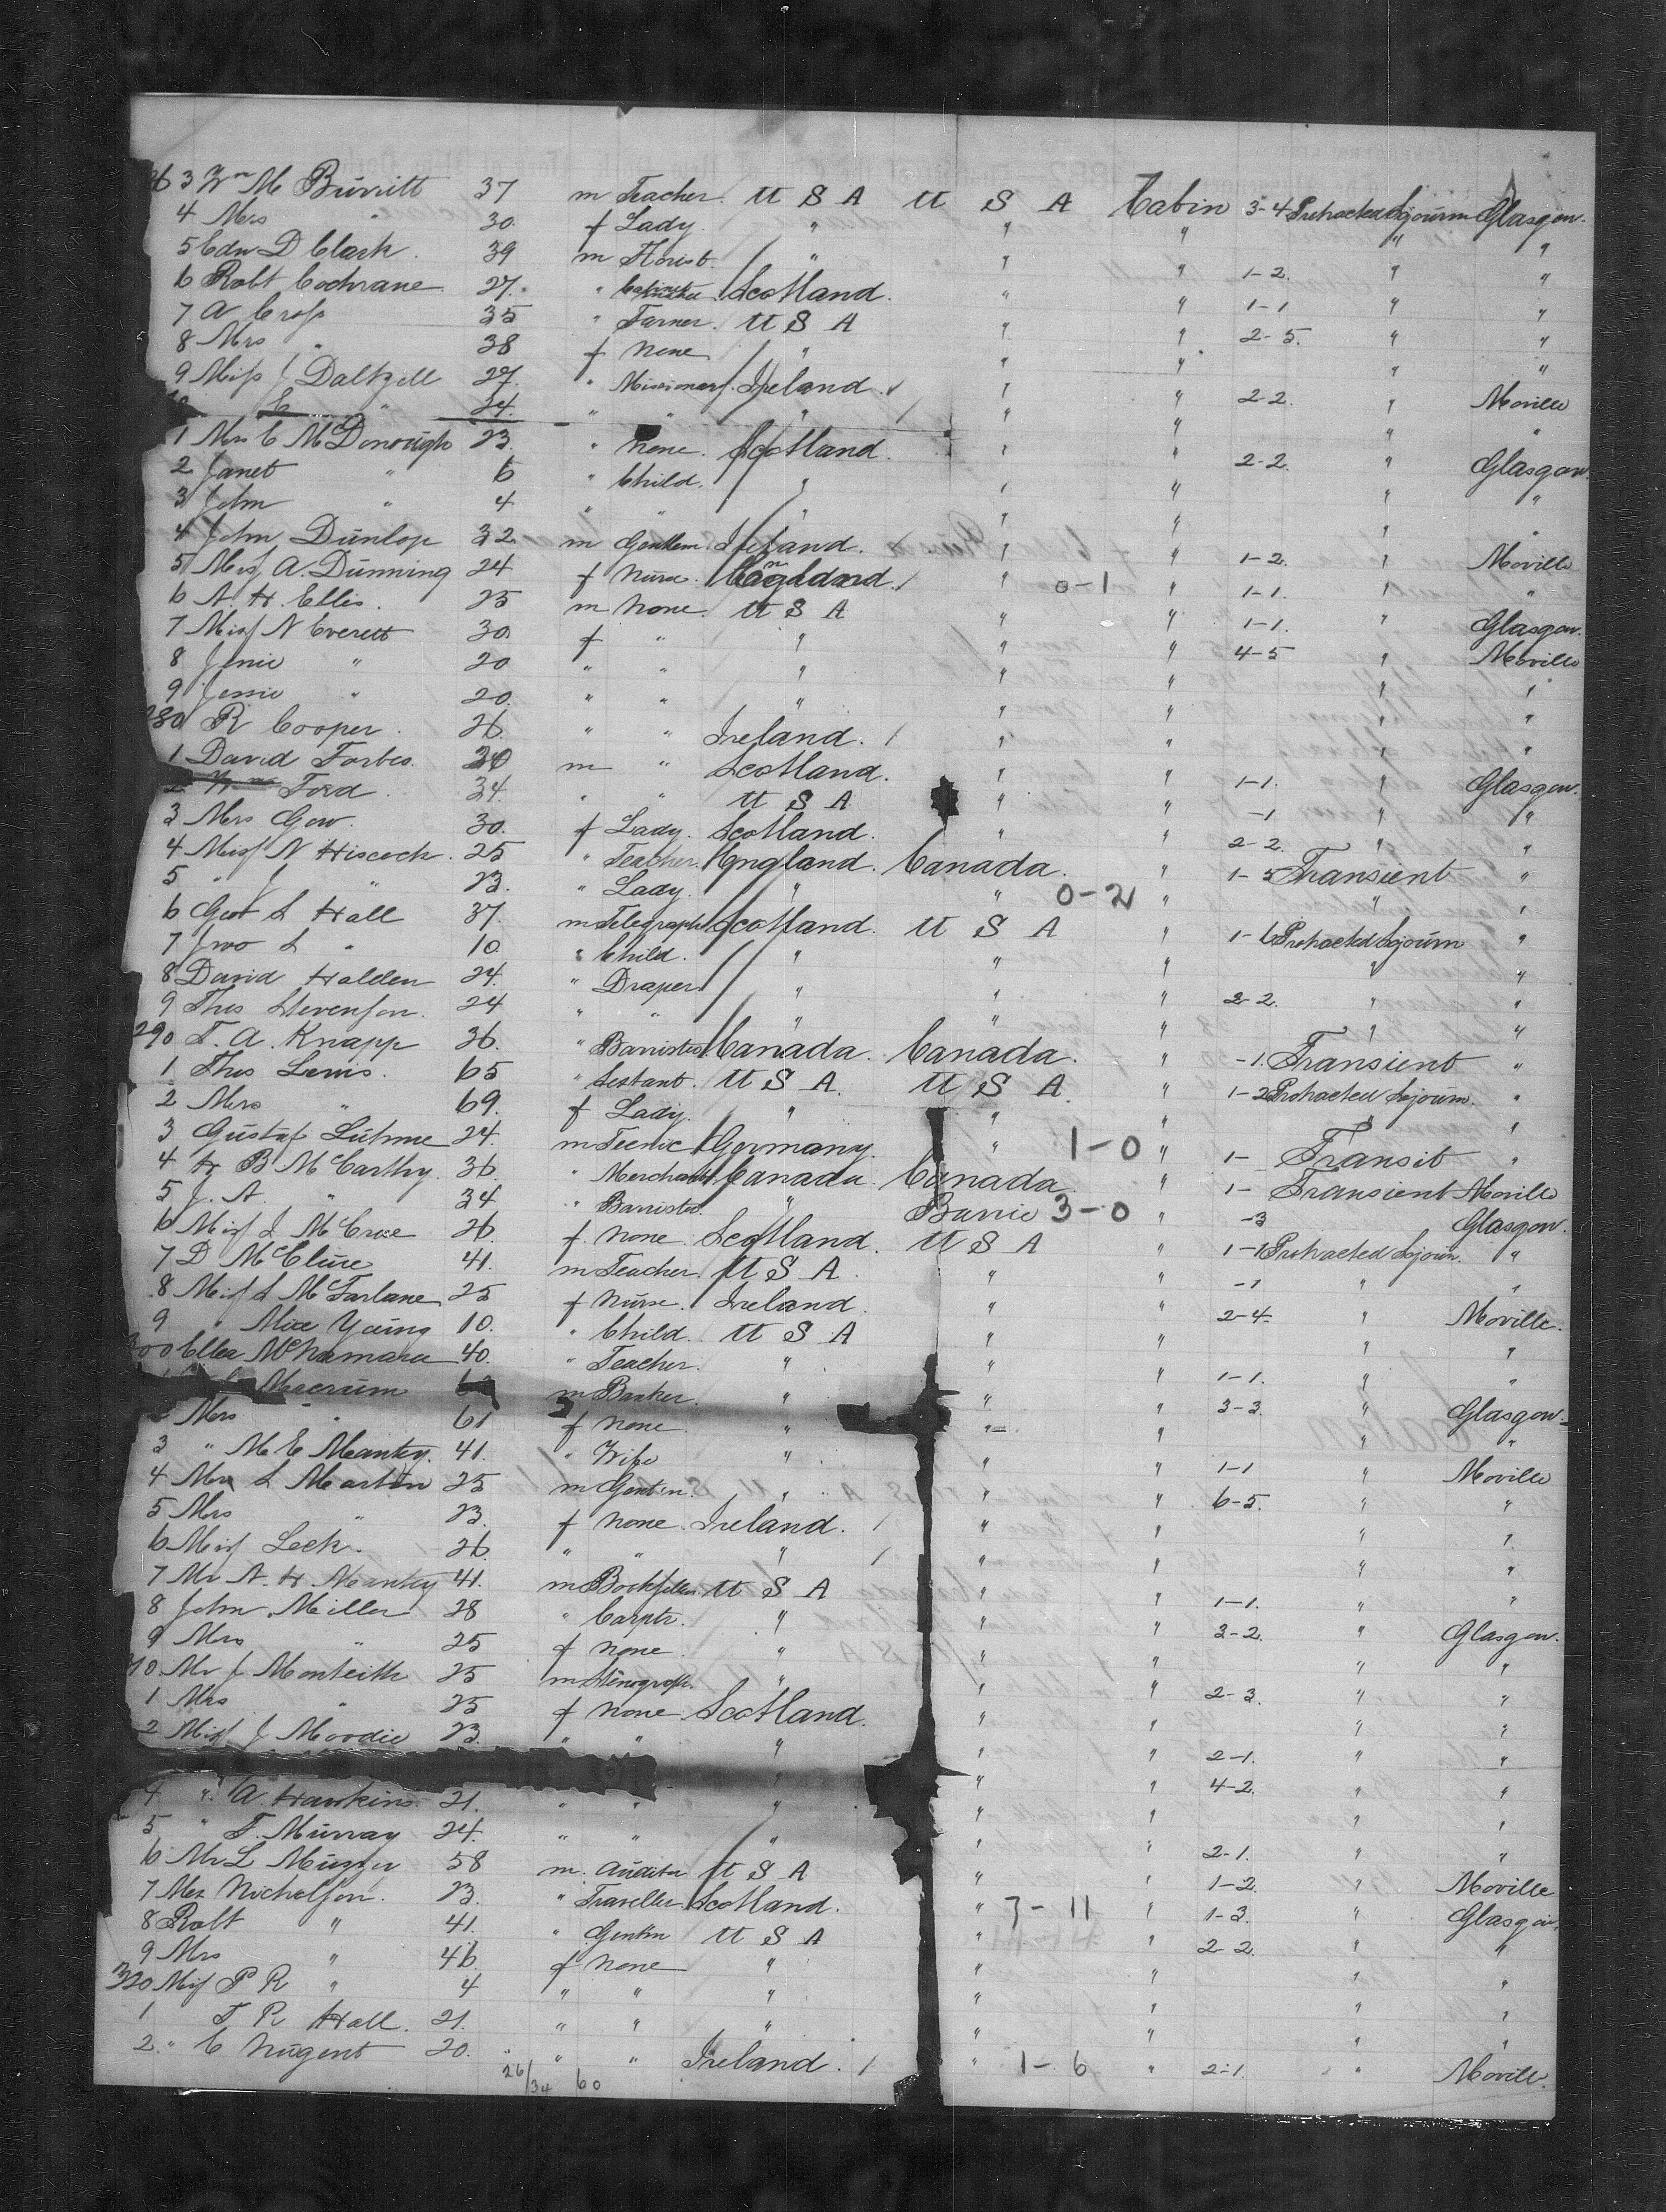 263 Wm M Burritt 37 m Teacher. U S A U S A Cabin 3-4 Protracted Sojourn Glasgow.
4 Mrs " 30. f Lady. " " " " "
5 Edw D Clark. 39 m Florist. " " " 1-2. " "
6 Robt Cochrane 27. " Cabinet maker Scotland. " " 1-1 " "
7 A Cross 35 " Farmer. U S A " " 2-5. " "
8 Mrs " 38 f None " " " " "
9 Miss J Daltzell 27. " Missionary. Ireland. " " 2-2. " Moville
E " 24. " " " " " " "
1 Mrs C McDonough 23. " None. Scotland. " " 2-2. " Glasgow
2 Janet " 6 " Child. " " " " "
3 John " 4 " " " " " " "
4 John Dunlop 32. m Gentlem. Ireland. " " 1-2. " Moville
5 Miss A. Dunning 24 f Nurse. England. " 0-1 " 1-1. " "
6 A. H. Ellis. 25 m None. U S A " " 1-1. " Glasgow.
7 Miss N Everett 30. f " " " " 4-5 " Moville
8 Jenie " 20 " " " " " " "
9 Jessie " 20. " " " " " " "
280 R Cooper. 26. " " Ireland. " " " "
1 David Forbes. 30 m " Scotland. " " 1-1. " Glasgow.
2 Wm Ford. 34. " " U S A " " -1 " "
3 Mrs Gow. 30. f Lady. Scotland. " " 2-2. " "
4 Miss N Hiscock. 25 " Teacher. England. Canada. " 1-5 Transient "
5 " J " 23. " Lady. " " 0-2 " " "
6 Geo L Hall 37. m Telegraph Scotland. U S A " 1-6 Protracted Sojourn "
7 Jno L " 10. " Child. " " " " "
8 David Halden 24. " Draper " " " 2-2. " "
9 Thos Stevenson. 24 " " " " " " "
290 T. A. Knapp 36. " Barrister Canada. Canada. " -1. Transient "
1 Thos Lewis. 65 " U S A. U S A. " 1-2 Protracted Sojourn. "
2 Mrs " 69. f Lady. " " " " "
3 Gustaf Luhme 24. m Germany. " 1-0 " 1- Transit "
4 H B McCarthy. 36. " Merchant. Canada. Canada. " 1- Transient Moville
5 J. A. " 34 " Barrister. " Barrie 3-0 " -3 Glasgow.
6 Miss J McCrae 26. f. None Scotland. U S A " 1-1 Protracted Sojourn. "
7 D McClure 41. m Teacher. U S A. " " -1 " "
8 Miss L McFarlane 25 f Nurse. Ireland. " " 2-4. " Moville.
9 " Mae Young 10. " Child. U S A " " " "
300 Ella McNamara 40. " Teacher. " " " 1-1. " "
Macrum m Banker. " " " 3-3. " Glasgow.
Mrs " 61 f None " " " " "
3 " M E Meanky. 41. " Wife " " " 1-1 " Moville
4 Mr L Martin 25 m Gentm. " " " 6-5. " "
5 Mrs " 23. f None. Ireland. " " " "
6 Miss Leck. 26. " " " " " " "
7 Mr A. H Meanky 41. m Bookseller U S A " " 1-1. " "
8 John Miller 28 " Carptr. " " " 3-2. " Glasgow.
9 Mrs " 25 f None. " " " " "
310. Mr J Monteith 25 m Stenogroph. " " " 2-3. " "
1 Mrs " 25 f None Scotland. " " " "
2 Miss J Moodie 23. " " " " " 2-1. " "
" " " 4-2. " "
4 " A. Hawkins. 21. " " " " " " "
5 " T. Murray 24. " " " " " 2-1. " "
6 Mr L 58 m. Auditor U S A " " 1-2. " Moville
7 Nicholson. 23. " Traveller Scotland. " 7-11 " 1-3. " Glasgow.
8 Robt " 41. " Gentm U S A " " 2-2. " "
9 Mrs " 46. f None " " " " "
320 Miss P R " 4 " " " " " " "
1 T R Hall. 21. " " " " " " "
2. " C Nugent 20. " " " Ireland. " 1-6 " 2-1. " Moville.
26/34 60